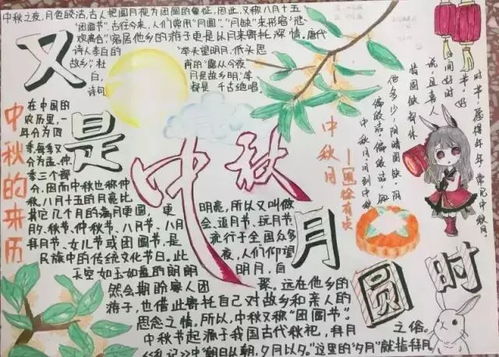 中秋之夜,月色皎洁,古人把圆月视为团圆的象征,因此,又称八月十五
为"团圆节"。古往今来,人们常用"月圆","月缺"来形容"悲
欢离合"。客居他乡的游子更是以月来寄托深情。唐代
诗人李白的"举头望明月,低头思
故乡",杜
甫的"露从今夜
白,月是故乡明"等
诗句都是千古绝唱
又是中秋月圆时
中秋的来历
在中国的
农历里,一
年分为四
季,每季又
分为孟、仲、
季三个部
分,因而中秋也称仲
秋。八月十五的月亮比
其它几个月的满月更圆,更
明亮,所以又叫做
月夕、秋节、仲秋节、八月节、八月
会、追月节、玩月节、
拜月节、女儿节或团圆节,是
流行于全国众多
民族中的传统文化节日。此
夜,人们仰望
天空如玉如盘的朗朗
明月,自
然会期盼家人团
聚。远在他乡的
游子,也借此寄托自己对故乡和亲人的
思念之情。所以,中秋又称"团圆节"。
中秋节起源于我国古代秋祀,拜月
之俗。
《礼记》中"朝日以朝,夕月以夕。"这里的"夕月"就指拜月
中秋月
中秋月。月到中秋
偏皎洁。偏皎洁,
知他多少,阴晴圆缺。阴